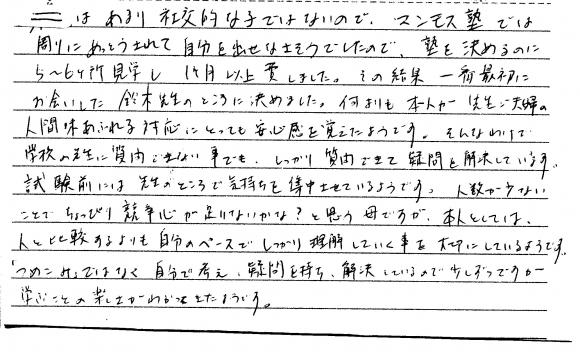 はあまり社交的な子ではないので、マンモス塾では
周りにあっとうされて自分を出せなさそうでしたので、塾を決めるのに
5〜6ヶ所見学し 1ヶ月以上費しました。その結果 一番最初に
お会いした 鈴木先生のところに決めました。何よりも 本人が 先生ご夫婦の
人間味あふれる対応にとっても安心感を覚えたようです。そんなわけで
学校の先生に質問できない事でも、しっかり質問できて疑問を解決しています。
試験前には先生のところで気持ちを集中させているようです。人数が少ない
ことでちょっぴり競争心が足りないかな?と思う母ですが、本人としては、
人と比較するよりも自分のペースでしっかり理解していく事を大切にしているようです。
「つめこみ」ではなく自分で考え、疑問を持ち、解決しているので少しずつですが
学ぶことの楽しさがわかってきたようです。